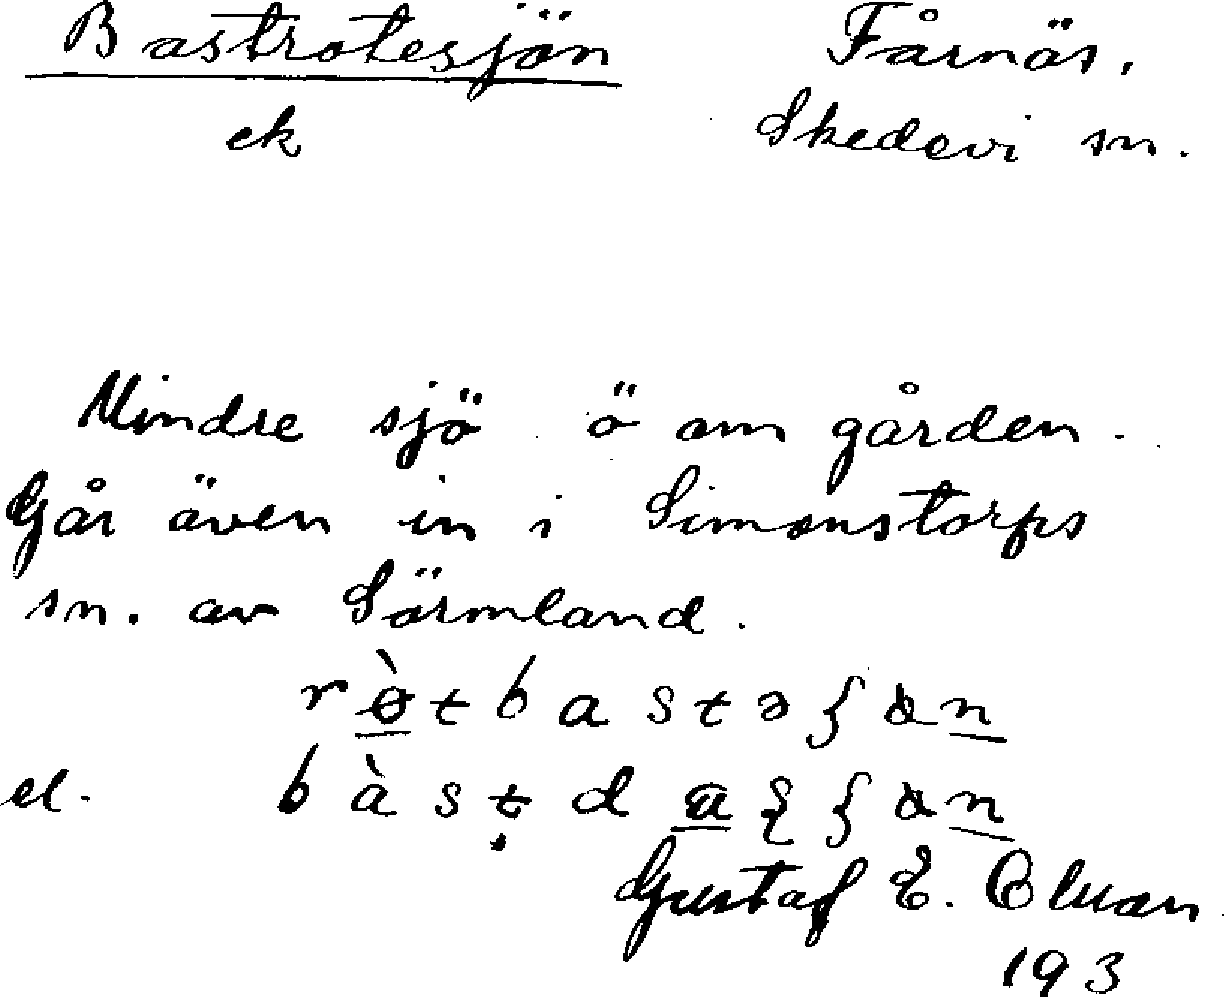 Bastrotesjön Fårnäs.
ek Skedevi sn.
Mindre sjö ö om gården.
Går även in i Simonstorps
sn. av Sörmland.
el.
Gustaf E.
193